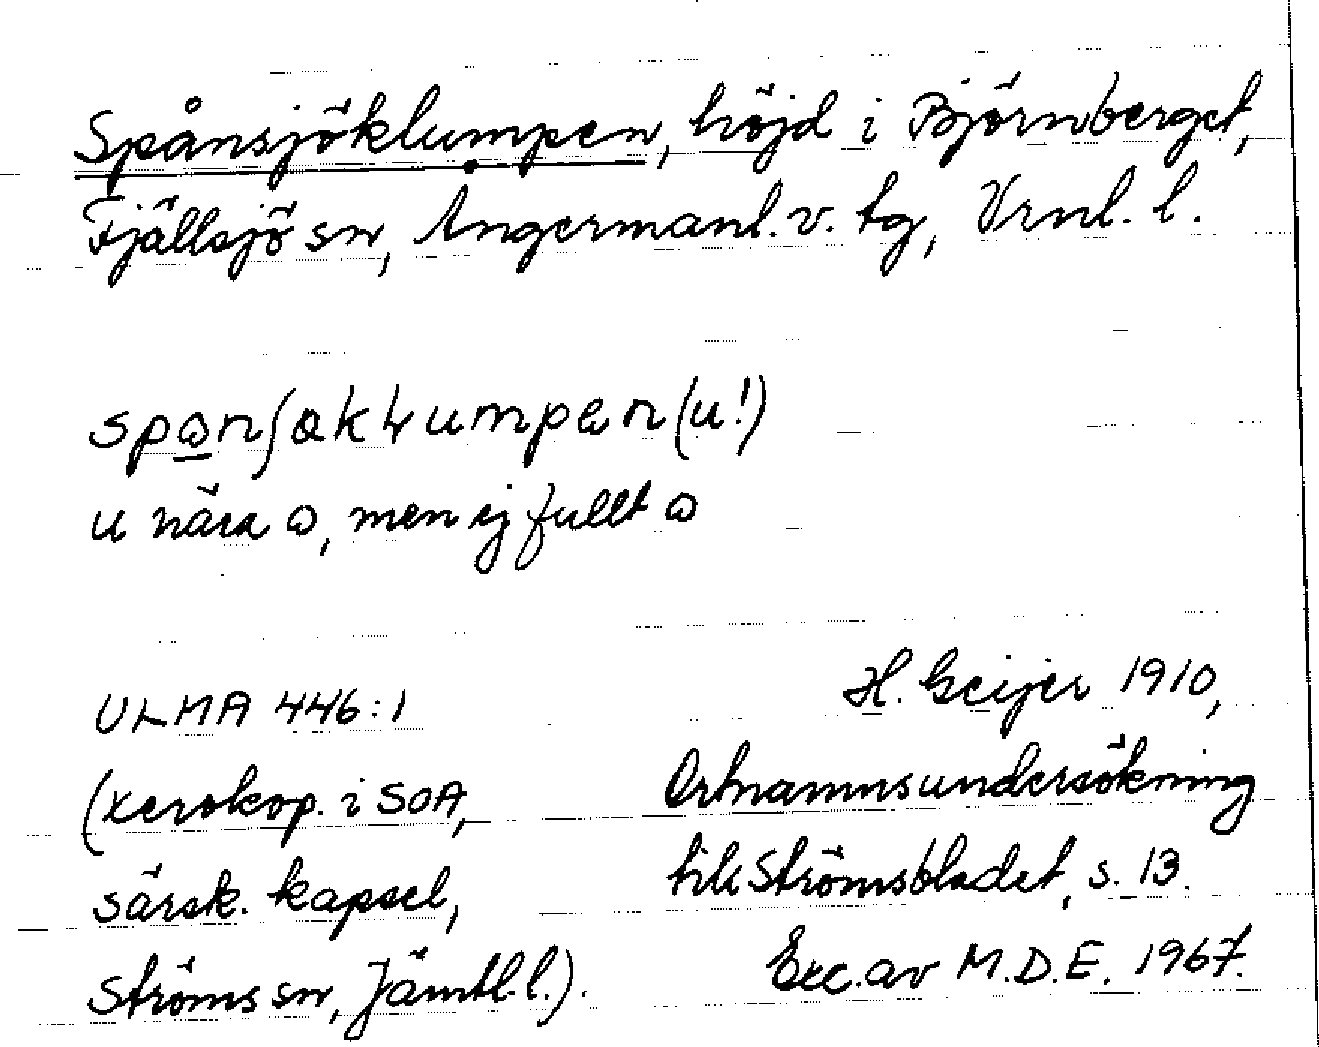 Spånsjöklumpen, höjd i Björnberget,
Fjällsjö sn, Ångermanl. v. tg, Vrnl. l.
(u!)
u nära o, men ej fullt o
ULMA 446:1
(xerokop. i SOA,
särsk. kapsel,
Ströms sn, Jämtl. l.).
H. Geijer 1910,
Ortnamnsundersökning
till Strömsbladet, s. 13.
Exc. av M.D.E. 1967.